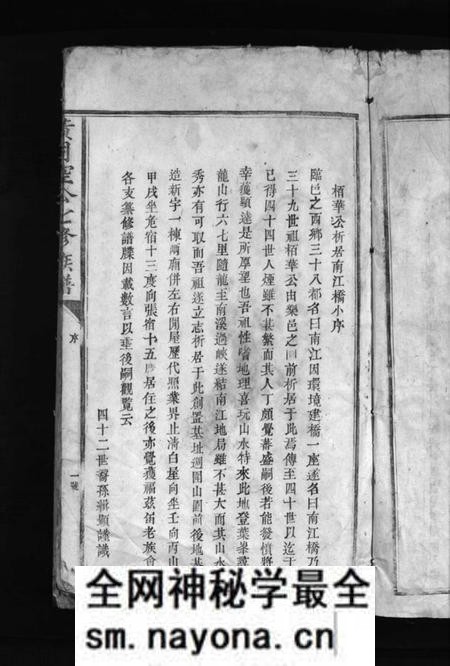 栢華公析居南江橋小序
臨邑之西鄉三十八都名曰南江因環境建橋一座遂名曰南江橋乃
三十九世祖栢華公由
前析居于此焉傳至四十世以迄于
已得四十四世人煙雖不甚繁而其人丁頗覺蕃盛嗣後若能發憤將
幸獲顯達是所厚望也吾祖性嗜地理喜玩山水特來此地登葉峯
龍山行六七里隨龍至南溪過峽遂結南江地局雖不甚大而其山水
秀亦有可取而吾祖遂立志析居于此創置基址週圍山圍前後地基
造新宇一棟兩廂併左右閒屋歷代照業界止清白屋向坐壬向丙山
甲戌坐危宿十三度向張宿十五度居住之後亦覺獲福茲因老族會
各支纂修譜牒因載數言以垂後嗣觀覽云
四十二世裔孫
顯謹識
公七修族譜
序
一號
全网神秘学最全
sm.nayona.cn